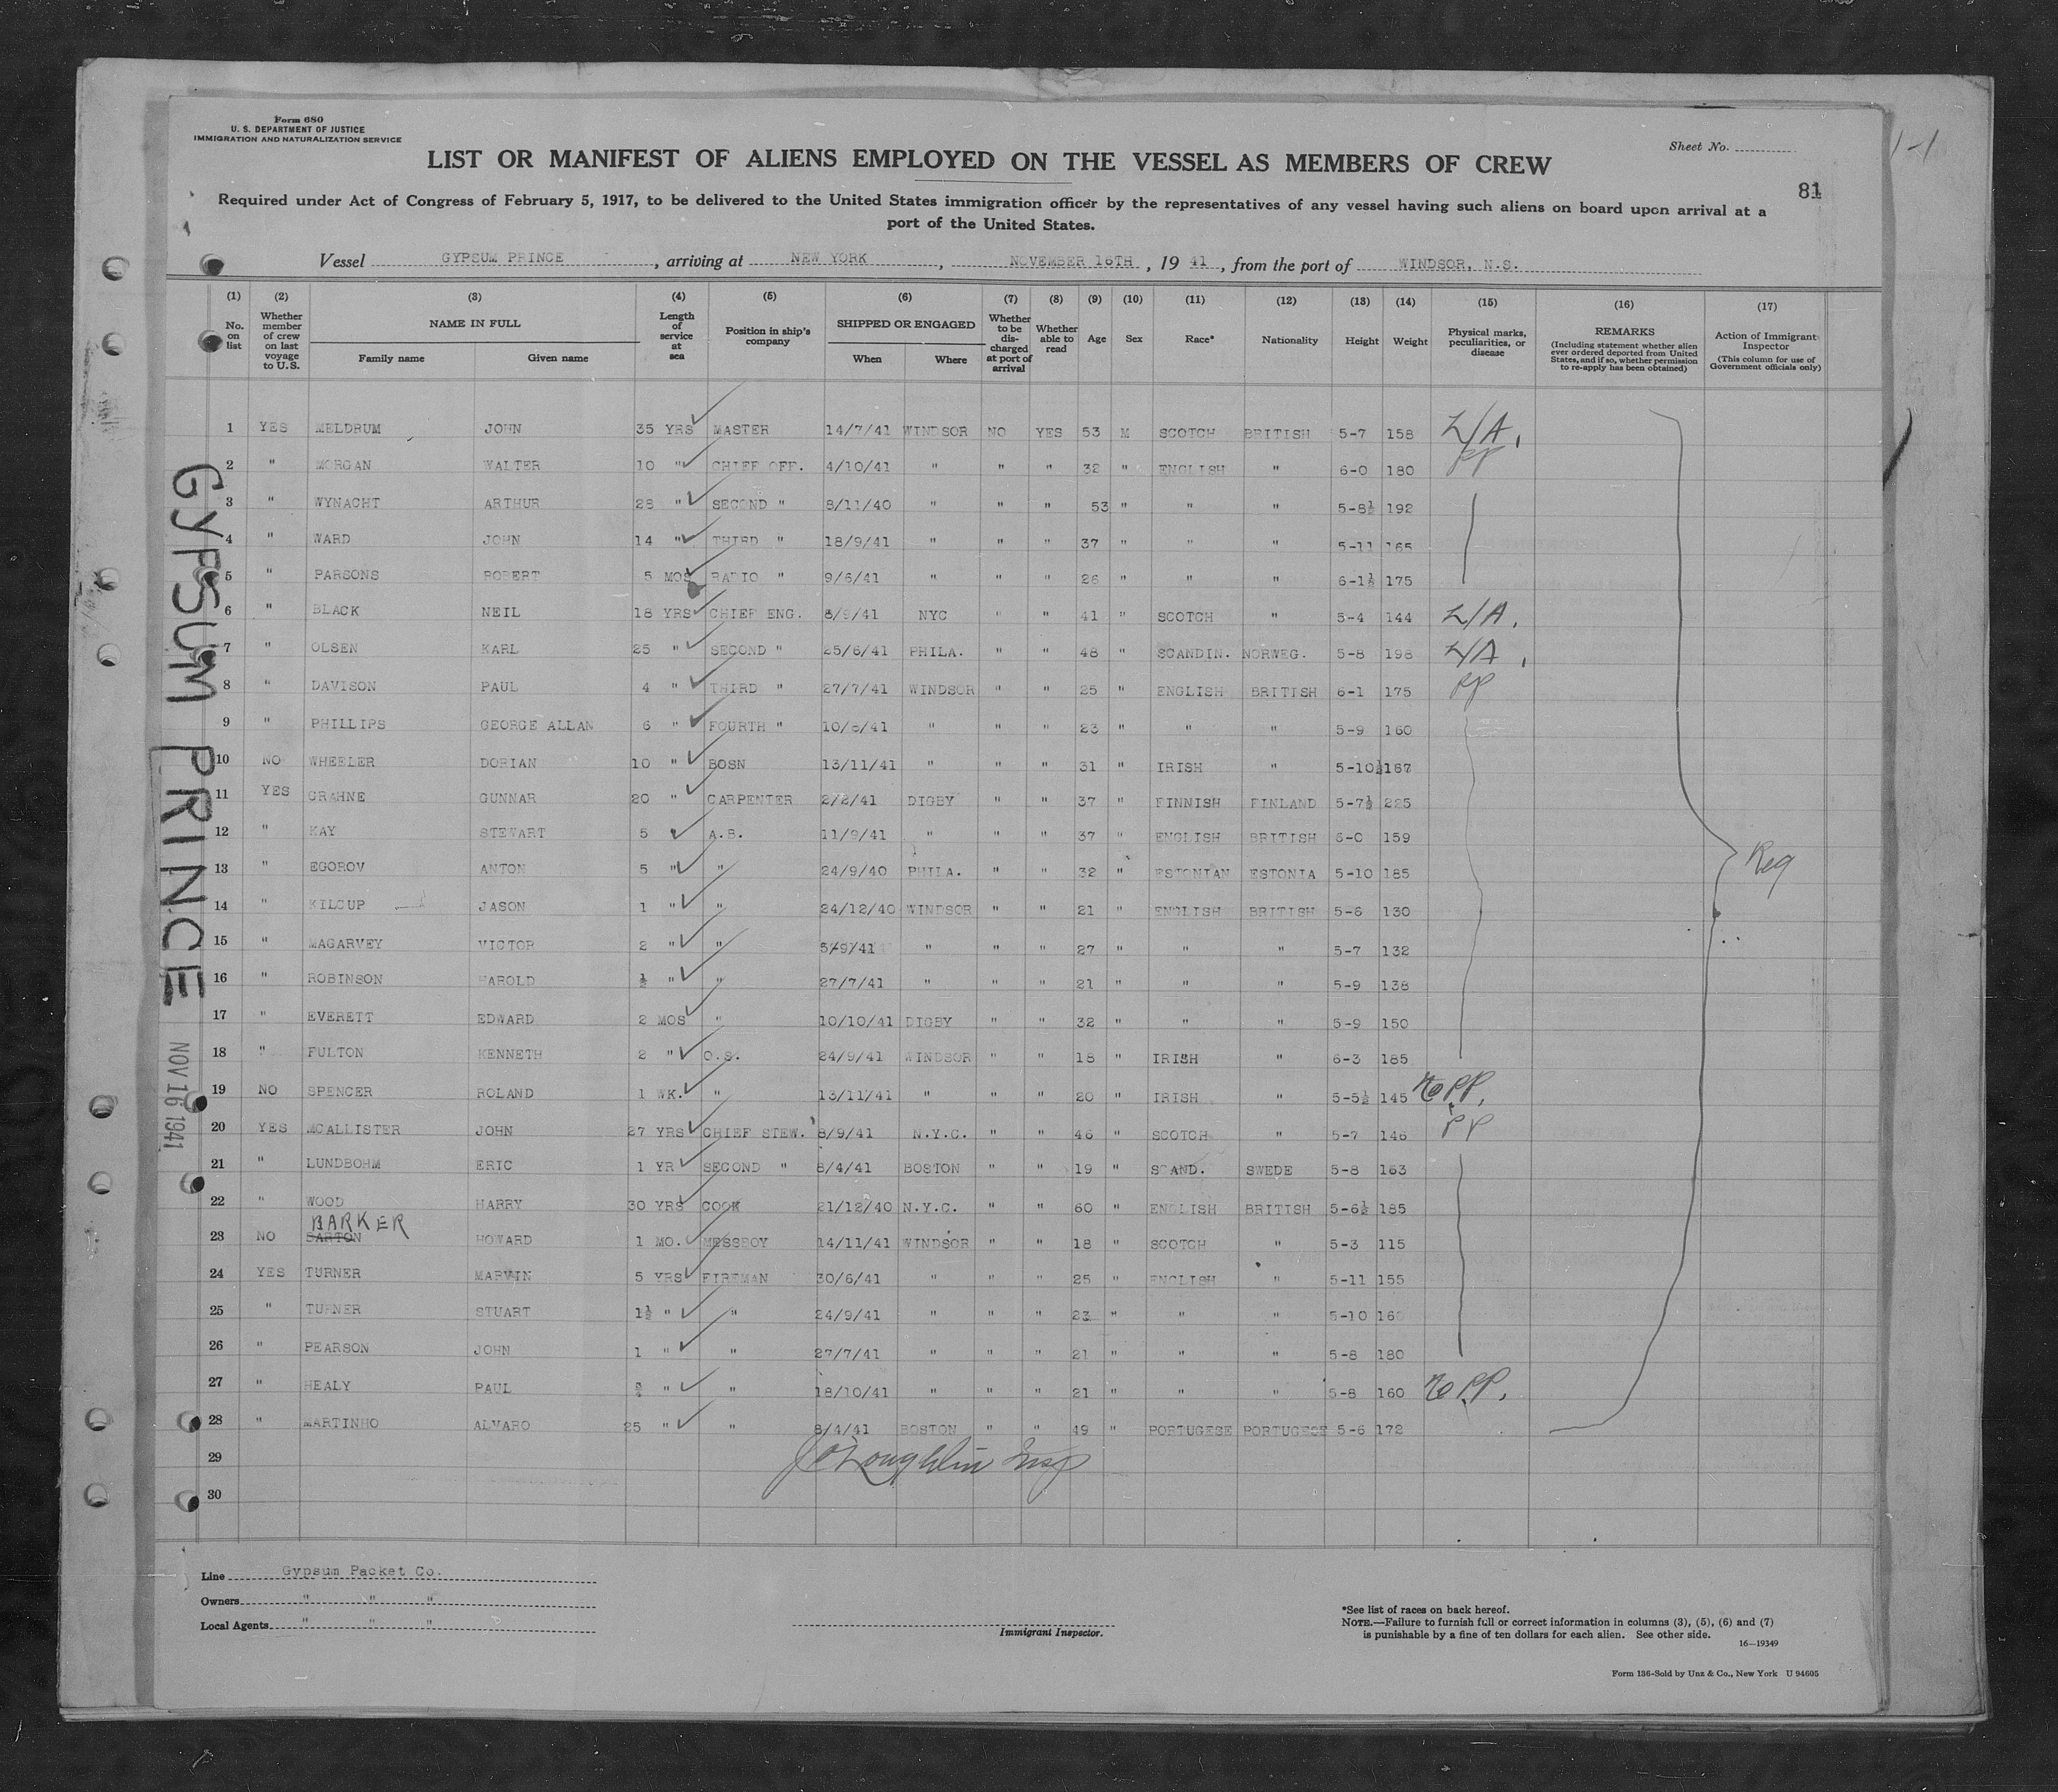 Form 680
U. S. DEPARTMENT OF JUSTICE
IMMIGRATION AND NATURALIZATION SERVICE
Sheet No.
LIST OR MANIFEST OF ALIENS EMPLOYED ON THE VESSEL AS MEMBERS OF CREW
81
Required under Act of Congress of February 5, 1917, to be delivered to the United States immigration officer by the representatives of any vessel having such aliens on board upon arrival at a
port of the United States.
Vessel GYPSUM PRINCE , arriving at NEW YORK , NOVEMBER 16TH , 19 41 , from the port of WINDSOR, N.S.
(1) (2) (3) (4) (5) (6) (7) (8) (9) (10) (11) (12) (13) (14) (15) (16) (17)
No. on list
Whether member of crew on last voyage to U.S.
NAME IN FULL
Family name Given name
Length of service at sea
Position in ship's company
SHIPPED OR ENGAGED
When Where
Whether to be discharged at port of arrival
Whether able to read
Age
Sex
Race*
Nationality
Height
Weight
Physical marks, peculiarities, or disease
REMARKS
(Including statement whether alien ever ordered deported from United States, and if so, whether permission to re-apply has been obtained)
Action of Immigrant Inspector
(This column for use of Government officials only)
1 YES MELDRUM JOHN 35 YRS MASTER 14/7/41 WINDSOR NO YES 53 M SCOTCH BRITISH 5-7 158 L/A.
2 " MORGAN WALTER 10 " CHIEF OFF. 4/10/41 " " " 32 " ENGLISH " 6-0 180 PP
3 " WYNACHT ARTHUR 28 " SECOND " 8/11/40 " " " 53 " " " 5-8½ 192
4 " WARD JOHN 14 " THIRD " 18/9/41 " " " 37 " " " 5-11 165
5 " PARSONS ROBERT 5 MOS RADIO " 9/6/41 " " " 26 " " " 6-1½ 175
6 " BLACK NEIL 18 YRS CHIEF ENG. 8/9/41 NYC " " 41 " SCOTCH " 5-4 144 L/A.
7 " OLSEN KARL 25 " SECOND " 25/6/41 PHILA. " " 48 " SCANDIN. NORWEG. 5-8 198 L/A.
8 " DAVISON PAUL 4 " THIRD " 27/7/41 WINDSOR " " 25 " ENGLISH BRITISH 6-1 175 PP
9 " PHILLIPS GEORGE ALLAN 6 " FOURTH " 10/8/41 " " " 23 " " " 5-9 160
10 NO WHEELER DORIAN 10 " BOSN 13/11/41 " " " 31 " IRISH " 5-10½ 167
11 YES GRAHNE GUNNAR 20 " CARPENTER 2/2/41 DIGBY " " 37 " FINNISH FINLAND 5-7½ 225
12 " KAY STEWART 5 A.B. 11/9/41 " " " 37 " ENGLISH BRITISH 6-0 159
13 " EGOROV ANTON 5 " " 24/9/40 PHILA. " " 32 " ESTONIAN ESTONIA 5-10 185 Req
14 " KILCUP JASON 1 " " 24/12/40 WINDSOR " " 21 " ENGLISH BRITISH 5-6 130
15 " MAGARVEY VICTOR 2 " " 5/9/41 " " " 27 " " " 5-7 132
16 " ROBINSON HAROLD ½ " " 27/7/41 " " " 21 " " " 5-9 138
17 " EVERETT EDWARD 2 MOS " 10/10/41 DIGBY " " 32 " " " 5-9 150
18 " FULTON KENNETH 2 " O.S. 24/9/41 WINDSOR " " 18 " IRISH " 6-3 185
19 NO SPENCER ROLAND 1 WK. " 13/11/41 " " " 20 " IRISH " 5-5½ 145 No PP.
20 YES MCALLISTER JOHN 27 YRS CHIEF STEW. 8/9/41 N.Y.C. " " 46 " SCOTCH " 5-7 146 PP
21 " LUNDBOHM ERIC 1 YR SECOND " 8/4/41 BOSTON " " 19 " SCAND. SWEDE 5-8 163
22 " WOOD HARRY 30 YRS COOK 21/12/40 N.Y.C. " " 60 " ENGLISH BRITISH 5-6½ 185
BARKER
23 NO BARTON HOWARD 1 MO. MESSBOY 14/11/41 WINDSOR " " 18 " SCOTCH " 5-3 115
24 YES TURNER MARVIN 5 YRS FIREMAN 30/6/41 " " " 25 " ENGLISH " 5-11 155
25 " TURNER STUART 1½ " " 24/9/41 " " " 23 " " " 5-10 160
26 " PEARSON JOHN 1 " " 27/7/41 " " " 21 " " " 5-8 180
27 " HEALY PAUL " " 18/10/41 " " " 21 " " " 5-8 160 No PP.
28 " MARTINHO ALVARO 25 " " 8/4/41 BOSTON " " 49 " PORTUGESE PORTUGESE 5-6 172
29
30
J O'Loughlin Insp
GYPSUM PRINCE
NOV 16 1941
Line Gypsum Packet Co.
Owners " " "
Local Agents " " "
Immigrant Inspector.
*See list of races on back hereof.
NOTE.—Failure to furnish full or correct information in columns (3), (5), (6) and (7)
is punishable by a fine of ten dollars for each alien. See other side.
16—19349
Form 136-Sold by Unz & Co., New York U 94605